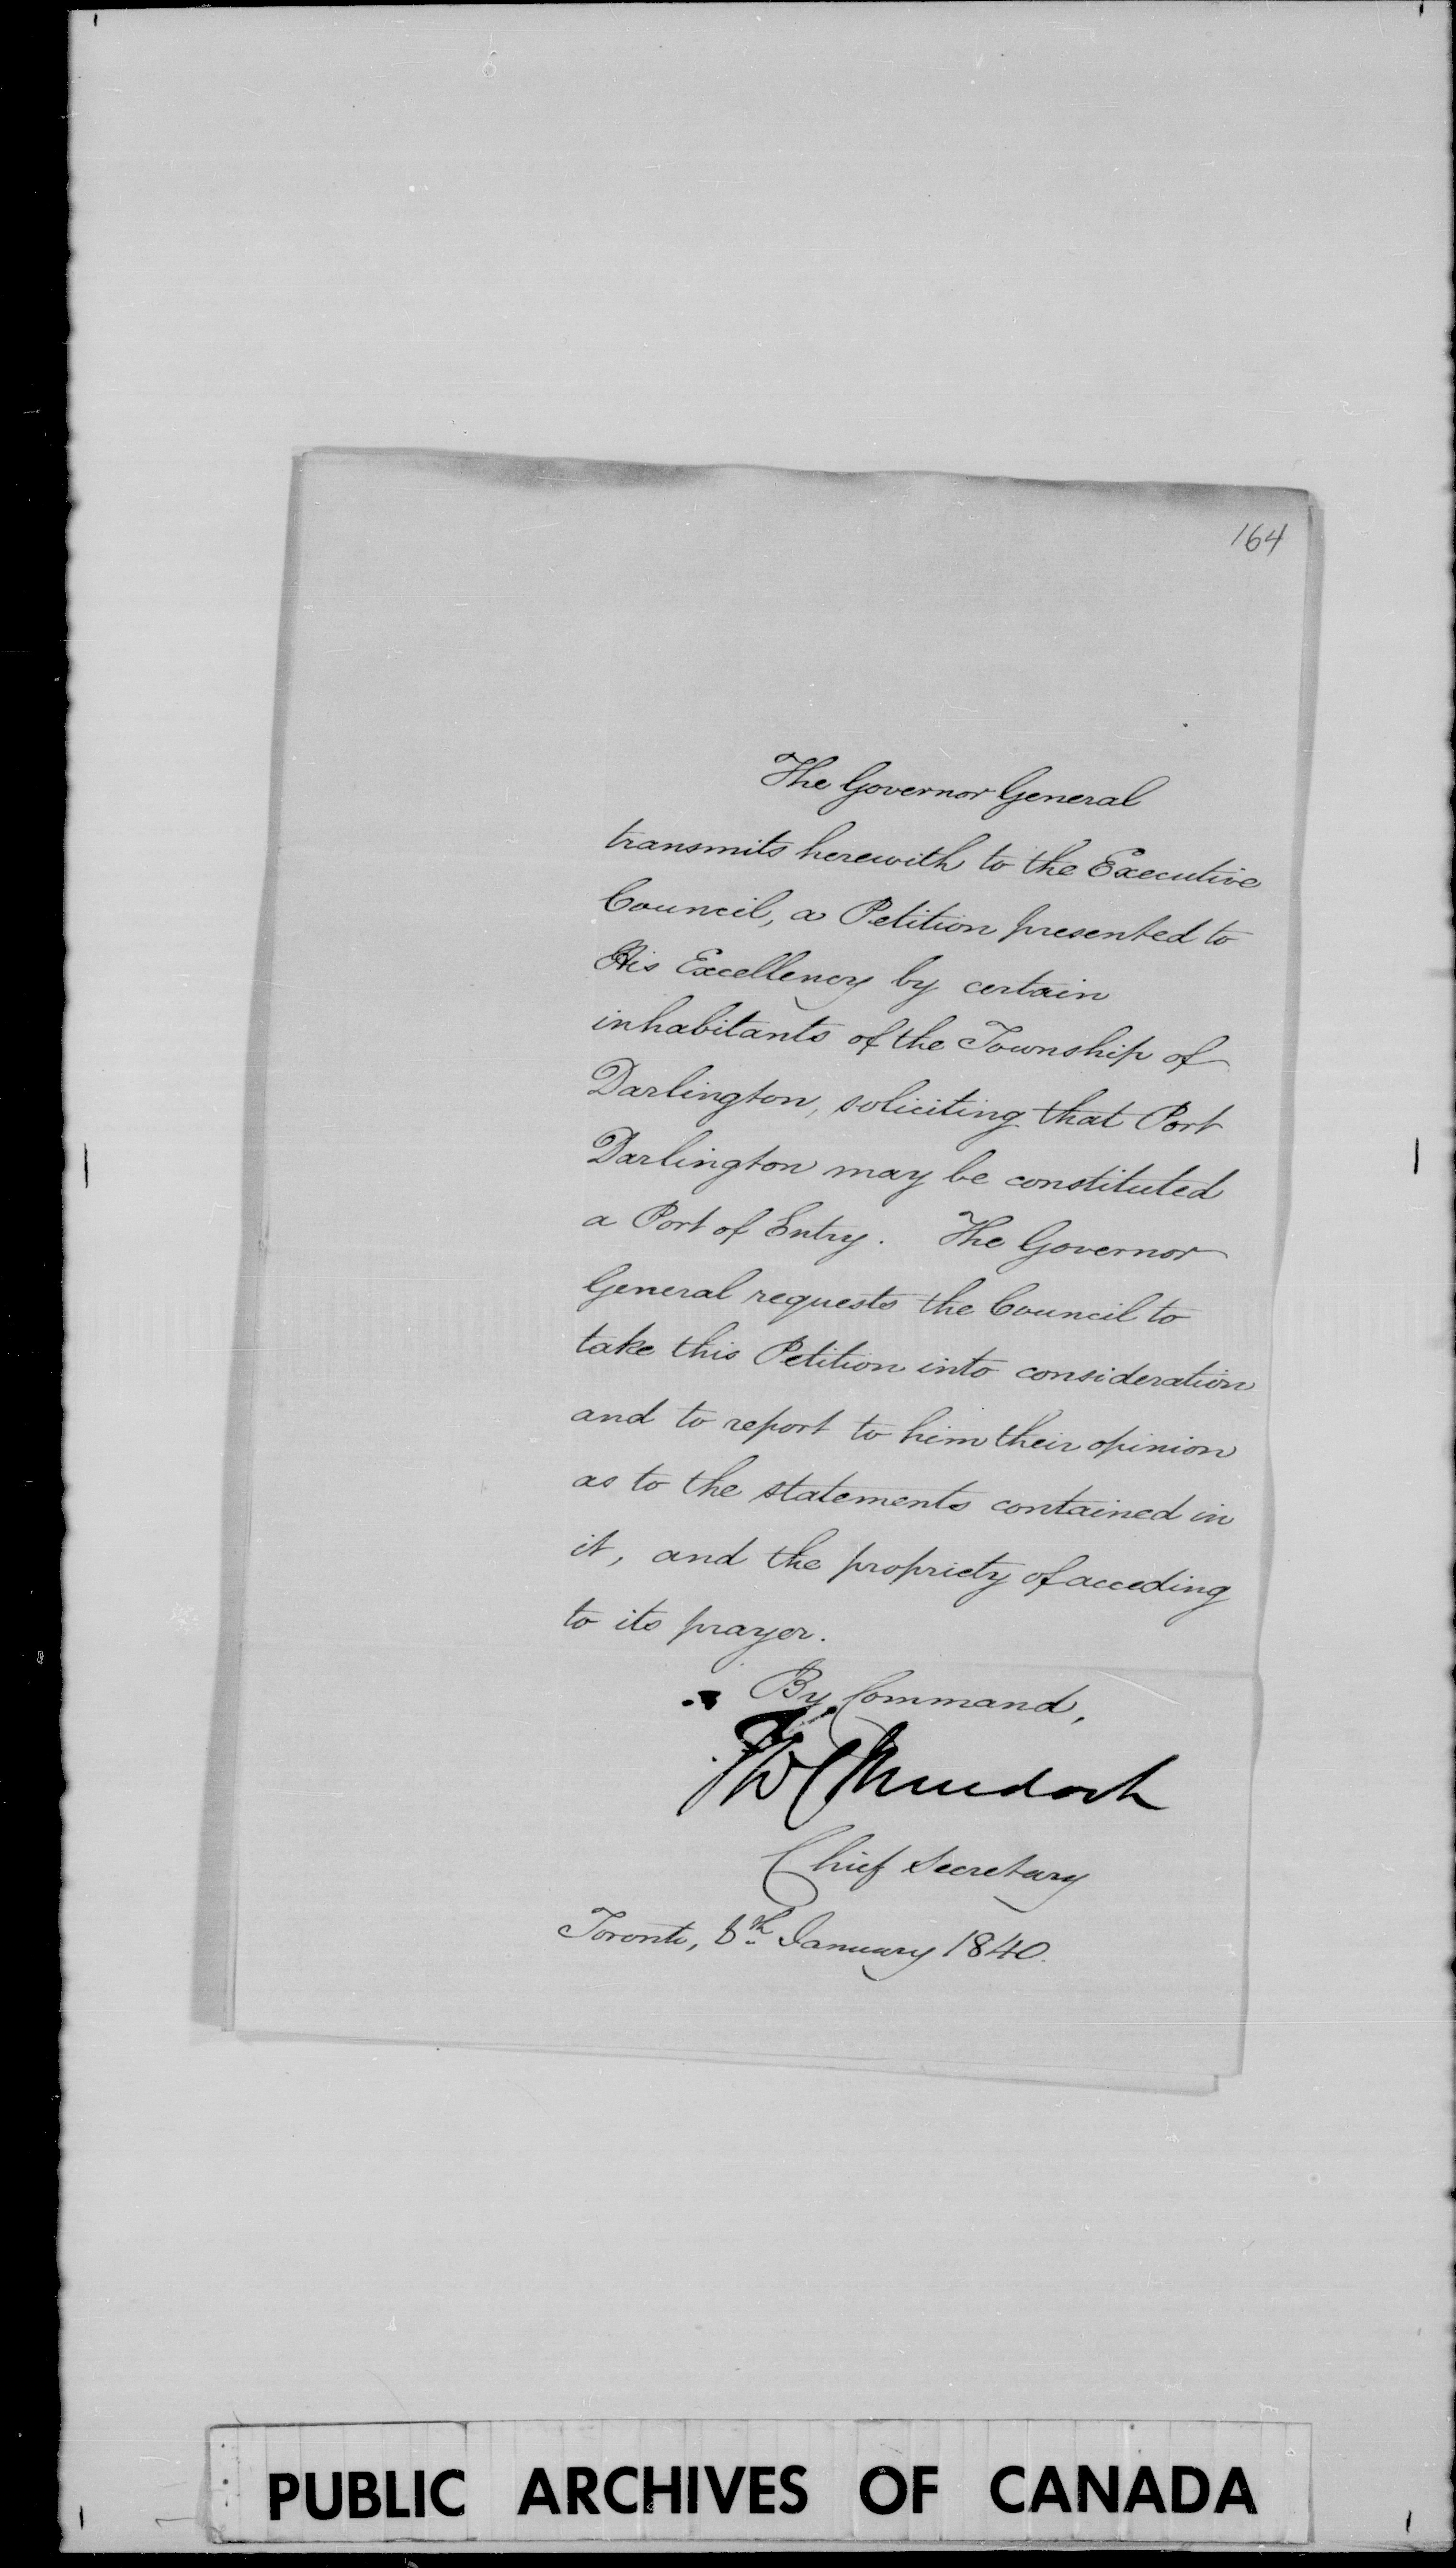 164
The Governor General
transmits herewith to the Executive
Council, a Petition presented to
His Excellency by certain
inhabitants of the Township of
Darlington, soliciting that Port
Darlington may be constituted
a Port of Entry. The Governor
General requests the Council to
take this Petition into consideration
and to report to him their opinion
as to the statements contained in
it, and the propriety of acceding
to its prayer.
By Command,
Th C Murdoch
Chief Secretary
Toronto, 8th January 1840.
PUBLIC ARCHIVES OF CANADA